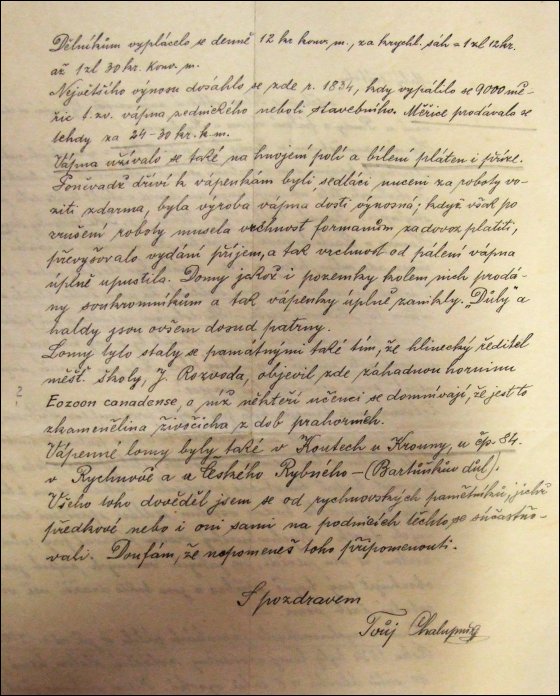 Dělníkům vyplácelo se denně 12 kr konv. m., za krychl. sáh = 1 zl 12 kr.
až 1 zl 30 kr. konv. m.
Největšího výnosu dosáhlo se zde r. 1834, kdy vypálilo se 9000 mě-
řic t. zv. vápna zednického neboli stavebního. Měřice prodávalo se
tehdy za 24-30 kr. k. m.
Vápna užívalo se také na hnojení polí a bílení pláten i příze.
Poněvadž dříví k vápenkám byli sedláci nuceni za roboty vo-
ziti zdarma, byla výroba vápna dosti výnosná; když však po
zrušení roboty musela vrchnost formanům za dovoz platiti,
převyšovalo vydání příjem, a tak vrchnost od pálení vápna
úplně upustila. Domy jakož i pozemky kolem nich prodá-
ny soukromníkům a tak vápenky úplně zanikly. „Důly" a
haldy jsou ovšem dosud patrny.
Lomy tyto staly se památnými také tím, že hlinecký ředitel
měšť. školy, J. Rozvoda, objevil zde záhadnou horninu
Eozoon canadense, o níž někteří učenci se domnívají, že jest to
zkamenělina živočicha z dob prahorních.
Vápenné lomy byly také v Koutech u Krouny, u čp. 84.
v Rychnově a u Českého Rybného - (Bartůňkův důl).
Všeho toho dověděl jsem se od rychnovských pamětníků, jichž
předkové nebo i oni sami na podnicích těchto se súčastňo-
vali. Doufám, že nepomeneš toho připomenouti.
S pozdravem
Tvůj Chalupník
2